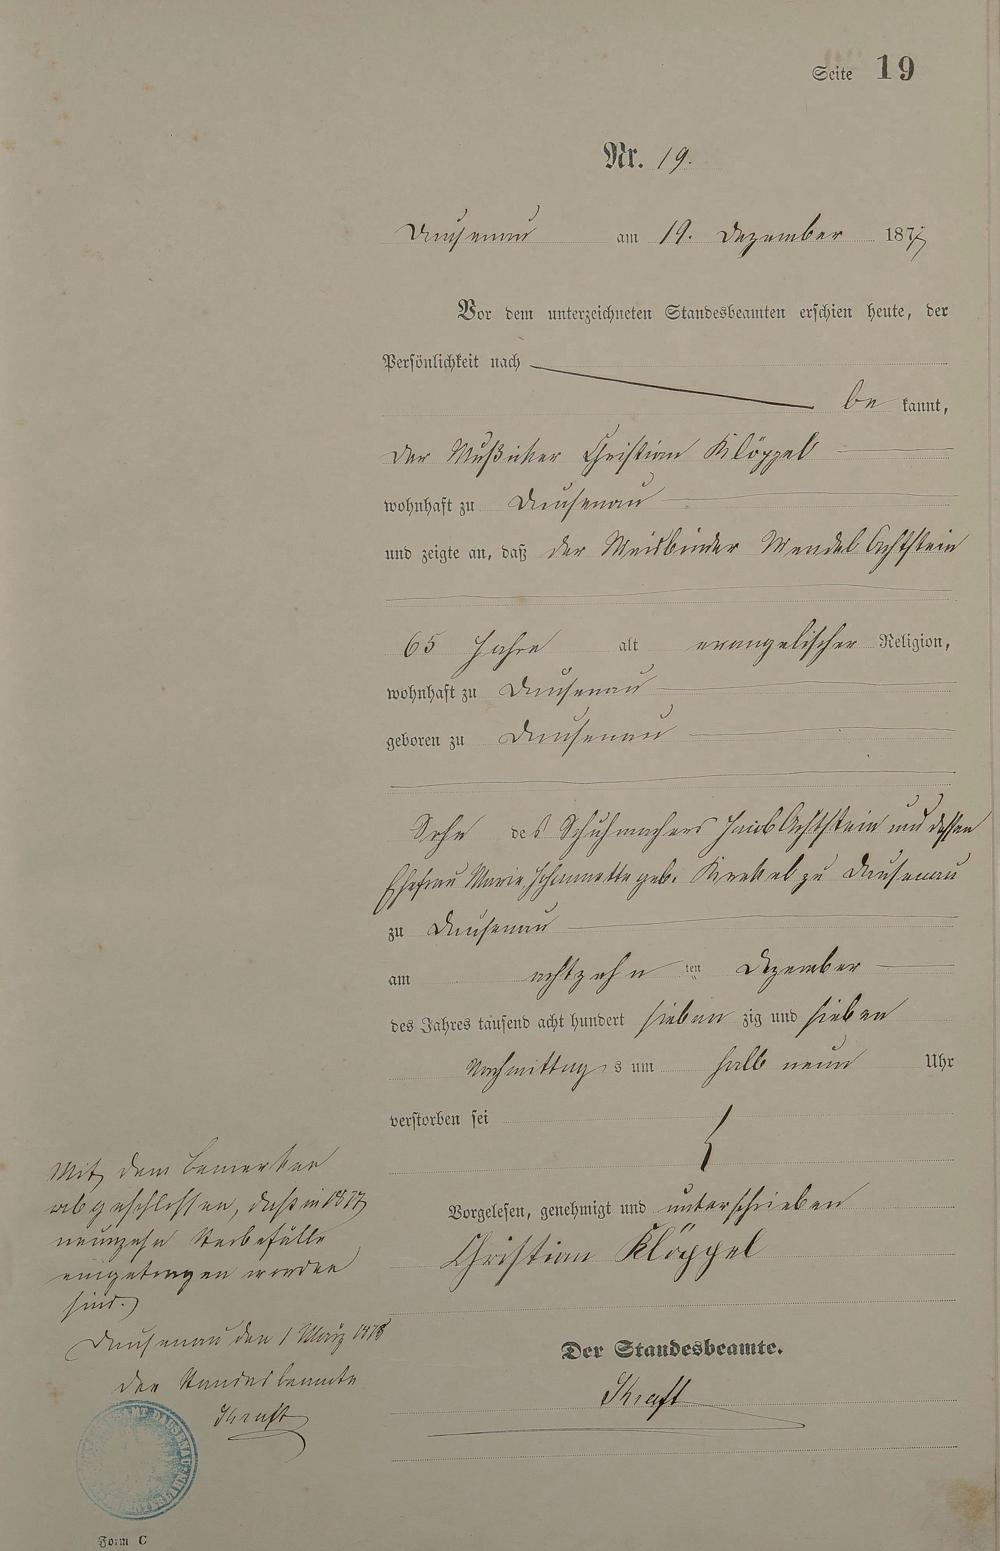 Seite 19
Nr. 19.
Dausenau am 19. Dezember 1877
Vor dem unterzeichneten Standesbeamten erschien heute, der
Persönlichkeit nach
be kannt,
der Mußicker Christian Klöppel
wohnhaft zu Dausenau
und zeigte an, daß der Wendel Achtstein
65 Jahre alt evangelischer Religion,
wohnhaft zu Dausenau
geboren zu Dausenau
Sohn des Schuhmachers Jacob Achtstein und dessen
Ehefrau Marie Johannette geb. zu Dausenau
zu Dausenau
am achtzehn ten Dezember
des Jahres tausend acht hundert sieben zig und sieben
Nachmittag s um halb neun Uhr
verstorben sei
Vorgelesen, genehmigt und unterschrieben
Christian Klöppel
Der Standesbeamte.
Kraft
Mit dem Bemerken
abgeschlossen, daß in 1877
neunzehn Sterbefälle
eingetragen worden
sind.
Dausenau den 1 März 1878
Der Standesbeamte
Kraft
Form C